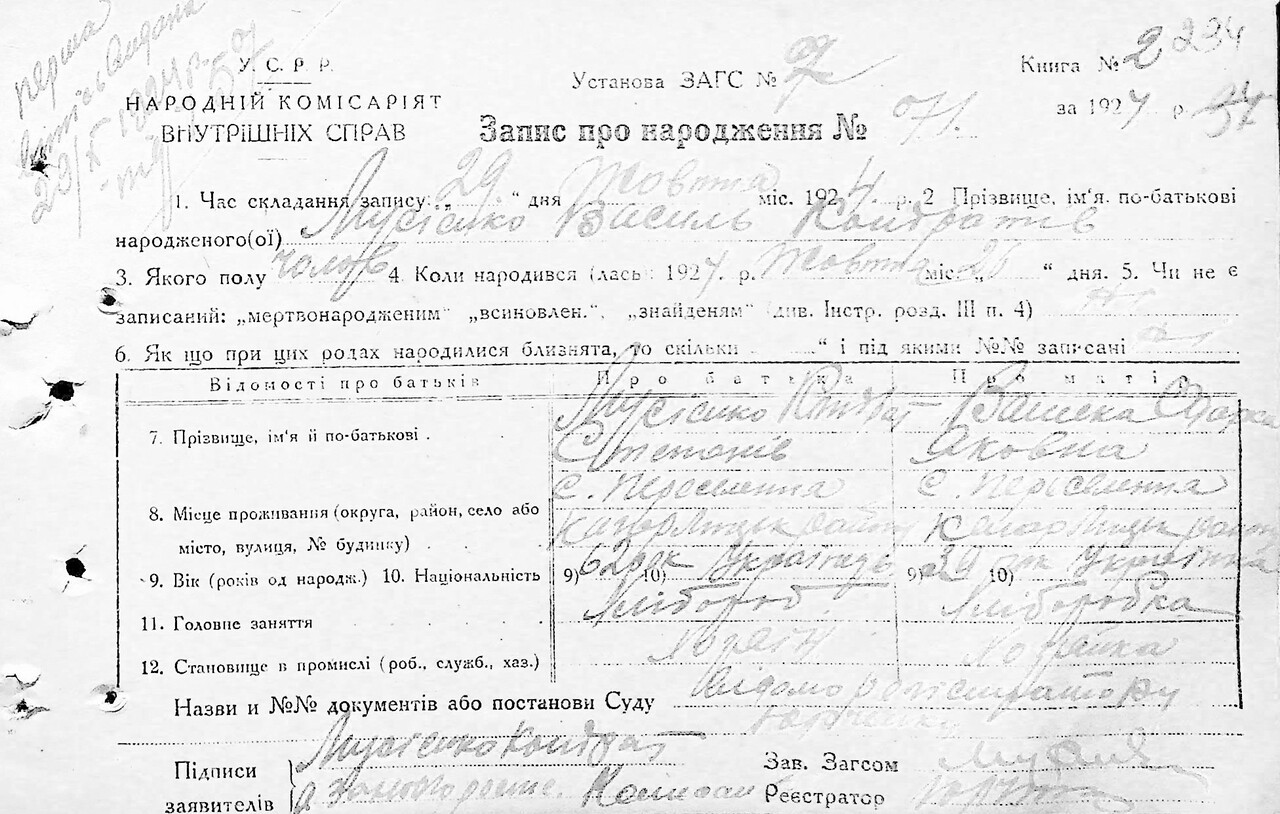 перша
23/X 1924 р.
У. С. Р. Р.
НАРОДНІЙ КОМІСАРІЯТ
ВНУТРІШНІХ СПРАВ
Установа ЗАГС №
Книга № 2 234
за 1924 р. 34
Запис про народження № 71.
1. Час складання запису: „ 29 " дня Жовтня міс. 1924 р. 2 Прізвище, ім'я. по-батькові
народженого(ої) Мусієнко Василь Кондратів
3. Якого полу чолов 4. Коли народився (лась) 1924 р. Жовтня міс. „ " дня. 5. Чи не є
записаний: „мертвонародженим" „всиновлен.", „знайденям" (див. Інстр. розд. III п. 4)
6. Як що при цих родах народилися близнята, то скільки " і під якими №№ записані
Відомості про батьків Про батька Про матір
7. Прізвище, ім'я й по-батькові . Мусієнко Кондрат
Степанів Яковна
с. Переселення с. Переселення
8. Місце проживання (округа, район, село або
місто, вулиця, № будинку)
9. Вік (років од народж.) 10. Національність 9) 62 рок 10) Українець 9) 10) Українка
11. Головне заняття Хлібороб Хліборобка
12. Становище в промислі (роб., служб., хаз.) Хозяїн Хозяйка
Назви и №№ документів або постанови Суду Відомо реєстратору
Підписи Мусієнко Кондрат Зав. Загсом
заявителів Реєстратор